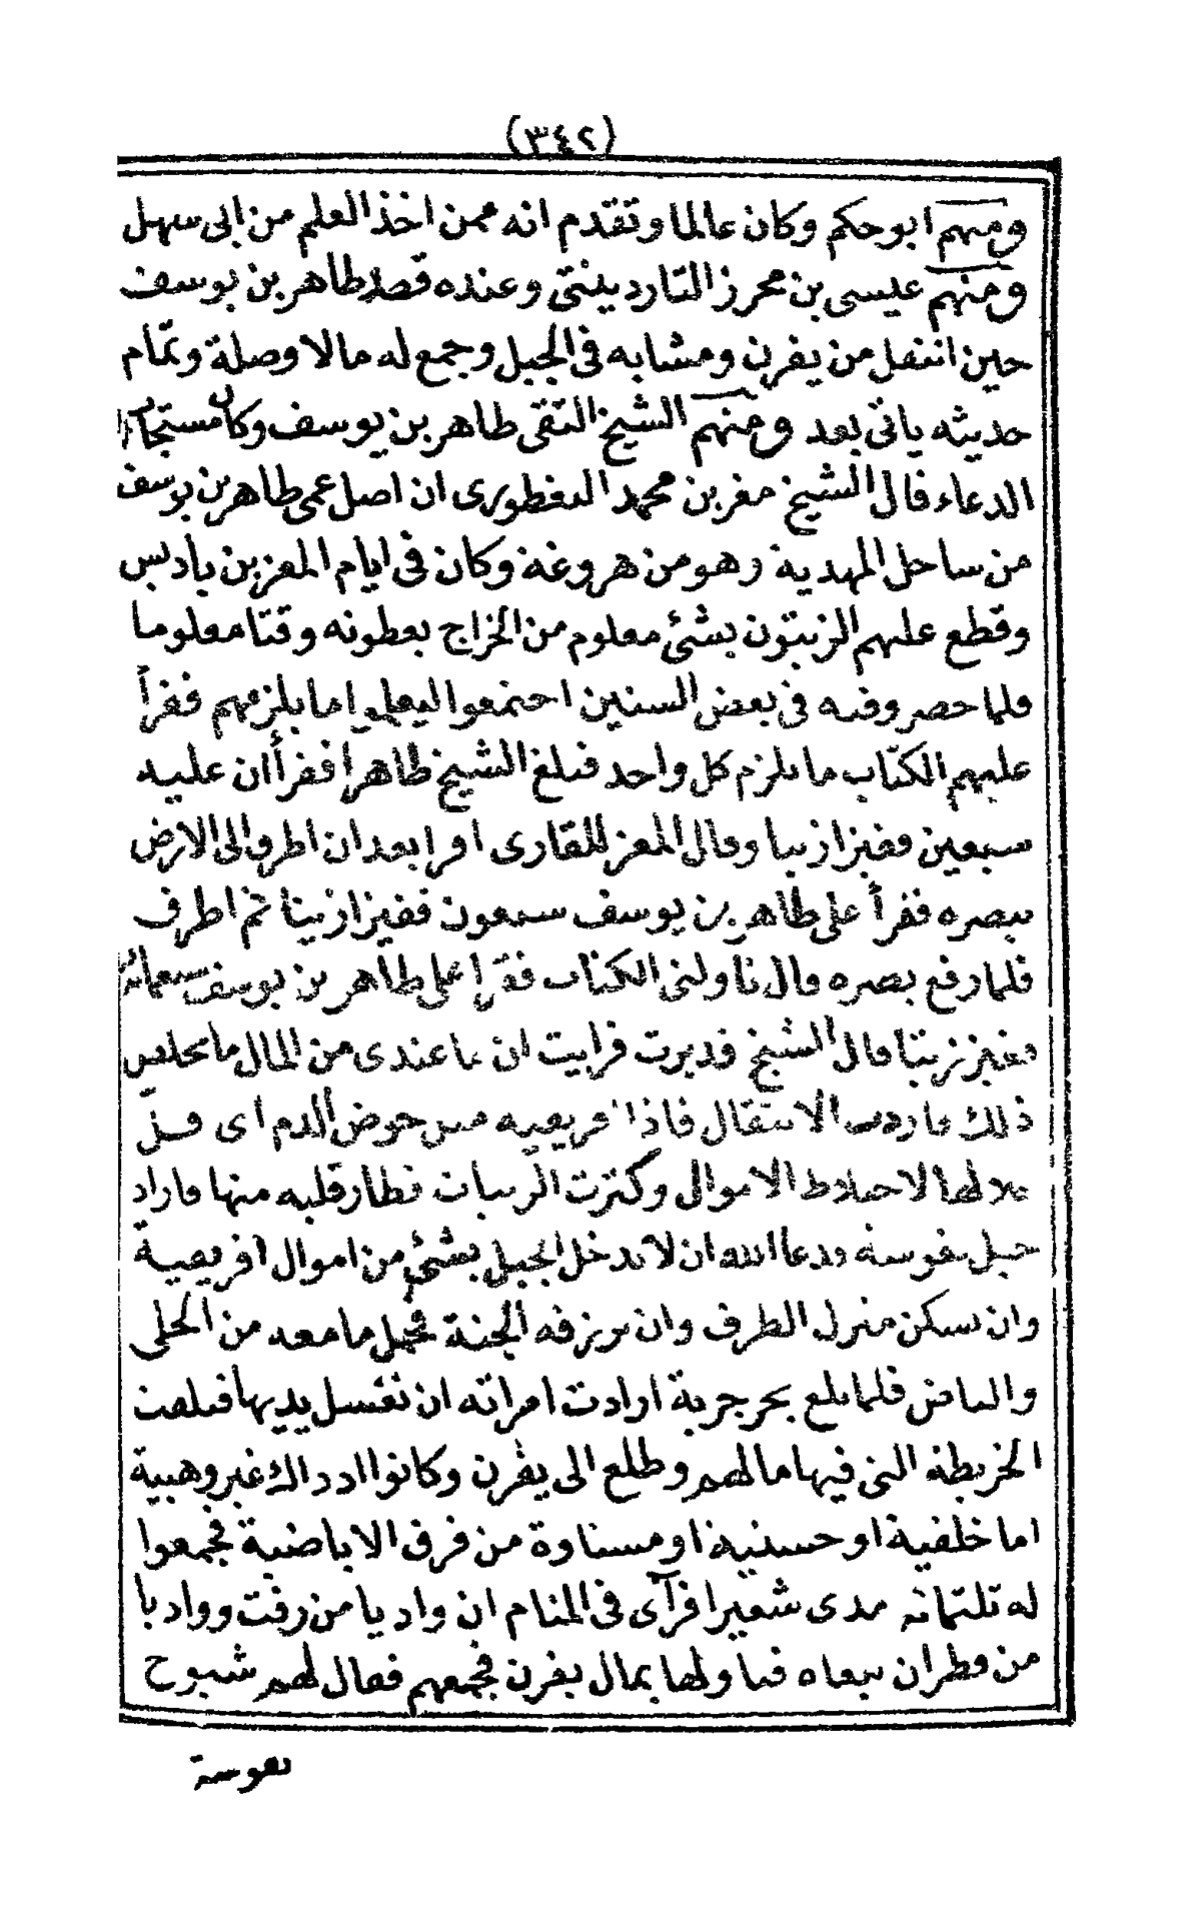 (٣٤٢)
ومنهم ابو حكم وكان عالما وتقدم انه ممن اخذ العلم من ابى سهل
ومنهم عيسى بن محرز التاردينتى وعنده قصد طاهر بن يوسف
حين انتقل من يفرن ومشابه فى الجبل وجمع له مالا وصلة وتمام
حديثه ياتى بعد ومنهم الشيخ التقى طاهر بن يوسف وكان مستجاب
الدعاء قال الشيخ مقر بن محمد البغطورى ان اصل عمى طاهر بن يوسف
من ساحل المهدية وهو من هروغة وكان فى ايام المعز بن باديس
وقطع عليهم الزيتون بشئ معلوم من الخراج يعطونه وقتا معلوما
فلما حصروا فيه فى بعض السنين اجتمعوا ليعلموا ما يلزمهم فقرأ
عليهم الكتاب ما يلزم كل واحد فبلغ الشيخ طاهرا فقرأ ان عليه
سبعين قفيزا زيتا وقال المعز للقارى اقرا بعد ان اطرق الى الارض
ببصره فقرأ على طاهر بن يوسف سبعون قفيزا زيتا ثم اطرق
فلما رفع بصره قال ناولنى الكتاب فقرا على طاهر بن يوسف سبعمائة
قفيز زيتا قال الشيخ فدبرت فرايت ان ما عندى من المال ما يخلص
ذلك فاردت الانتقال فاذا افريقية مثل حوض الدم اى قل
حلالها لاختلاط الاموال وكثرت الريبات فطار قلبه منها فاراد
جبل نفوسة ودعا الله ان لا يدخل الجبل بشئ من اموال افريقية
وان يسكن منزل الطرف وان يرزقه الجنة فحمل ما معه من الحلى
والبياض فلما بلغ بحر جربة ارادت امراته ان تغسل يديها فبلعت
الخريطة التى فيها مالهم وطلع الى يفرن وكانوا اذ ذاك غير وهبية
اما خلفية او حسنية او مسناوة من فرق الاباضية فجمعوا
له ثلثمائة مدى شعيرا فرآى فى المنام ان واديا من زفت وواديا
من قطران تبعاه فتاولها بمال يفرن فجمعهم فقال لهم شيوخ
نفوسة